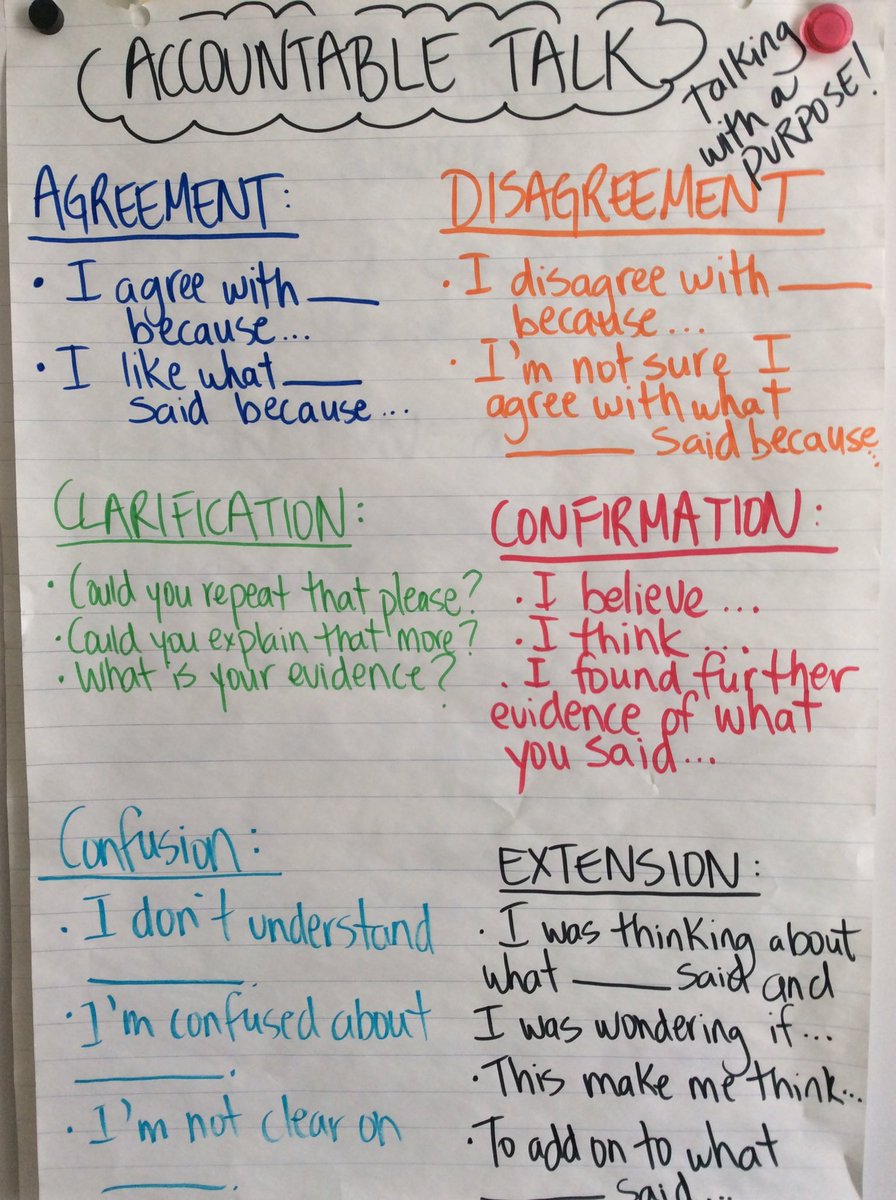 ACCOUNTABLE TALK
Talking
with a
PURPOSE!
AGREEMENT:
• I agree with ____
because...
• I like what ____
said because...
DISAGREEMENT
• I disagree with ____
because...
• I'm not sure I
agree with what
____ said because...
CLARIFICATION:
• Could you repeat that please?
• Could you explain that more?
• What is your evidence?
CONFIRMATION:
• I believe...
• I think...
• I found further
evidence of what
you said...
Confusion:
• I don't understand
____.
• I'm confused about
____.
• I'm not clear on
____.
EXTENSION:
• I was thinking about
what ____ said and
I was wondering if...
• This make me think...
• To add on to what
____ said...